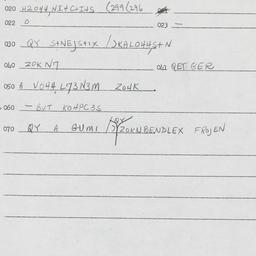 020 H2O44, NI+C+I4S (299(296
022 0 023 —
030 QY S+NEJS+1X / )KALO44S+N
040 ZOKN7 041 QET GER
050 A VO44, L73N3M ZO4K .
060 — BUT KO4PC3S
070 QY A GUMI / )ZOKNBENDLEX FROJEN
QY